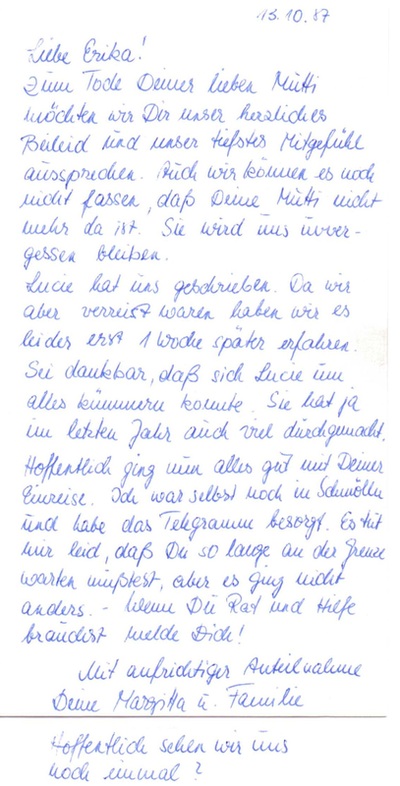 13.10.87
Liebe Erika!
Zum Tode Deiner lieben Mutti
möchten wir Dir unser herzliches
Beileid und unser tiefstes Mitgefühl
aussprechen. Auch wir können es noch
nicht fassen, daß Deine Mutti nicht
mehr da ist. Sie wird uns unver-
gessen bleiben.
Lucie hat uns geschrieben. Da wir
aber verreist waren haben wir es
leider erst 1 Woche später erfahren.
Sei dankbar, daß sich Lucie um
alles kümmern konnte. Sie hat ja
im letzten Jahr auch viel durchgemacht.
Hoffentlich ging nun alles gut mit Deiner
Einreise. Ich war selbst noch in Schmölln
und habe das Telegramm besorgt. Es tut
mir leid, daß Du so lange an der Grenze
warten mußtest, aber es ging nicht
anders. - Wenn Du Rat und Hilfe
brauchst melde Dich!
Mit aufrichtiger Anteilnahme
Deine Margitta u. Familie
Hoffentlich sehen wir uns
noch einmal?